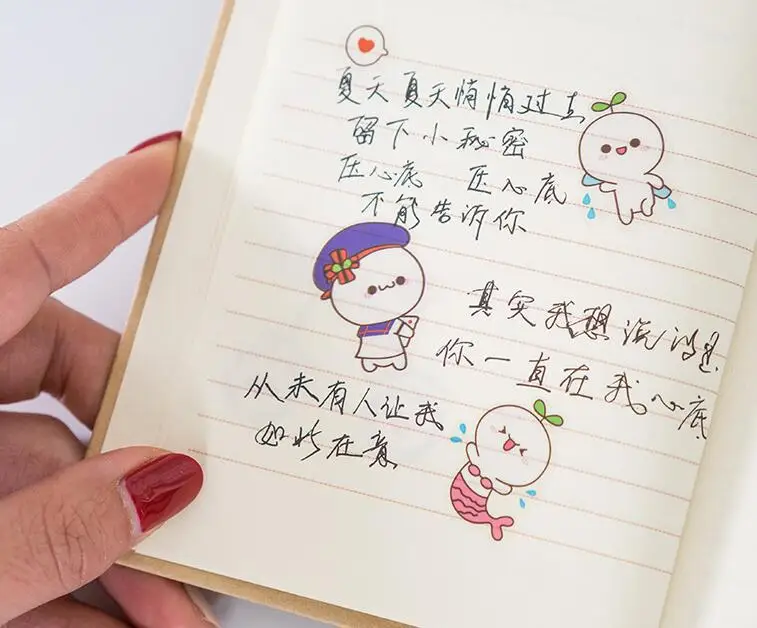 夏天夏天悄悄过去
留下小秘密
压心底 压心底
不能告诉你
其实我想说的是
你一直在我心底
从未有人让我
如此在意